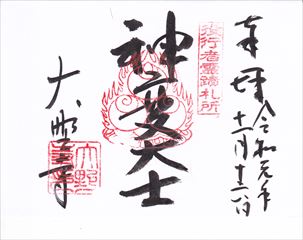 奉拝 令和元年十一月十六日
役行者霊蹟札所
神変大士
大野寺